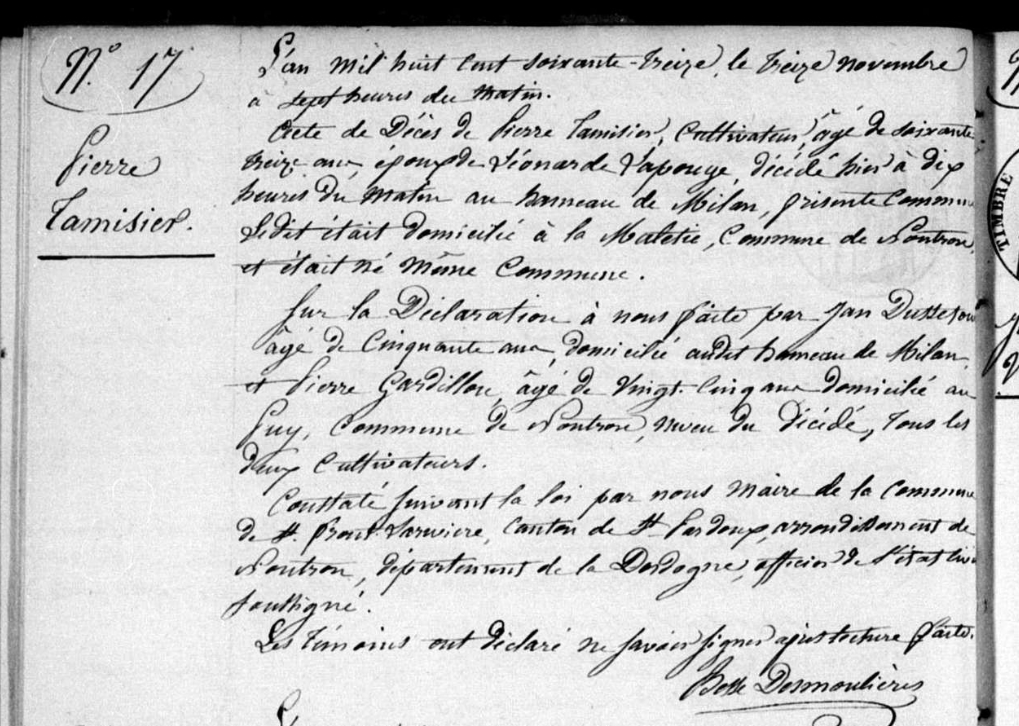 N.° 17
Pierre
Tamisier.
L'an mil huit cent soixante-treize, le treize novembre
à sept heures du matin.
Acte de Décès de Pierre Tamisier, Cultivateur, âgé de soixante
treize ans, époux de Léonarde Lapouge, décédé hier à dix
heures du matin au hameau de Milan, présente Commune
Ledit était domicilié à la Maletie, Commune de Nontron,
et était né même Commune.
Sur la Déclaration à nous faite par Jan
âgé de Cinquante ans, domicilié audit hameau de Milan
et Pierre Gardillou, âgé de vingt-Cinq ans domicilié au
Puy, Commune de Nontron, neveu du décédé, tous les
deux Cultivateurs.
Constaté suivant la loi par nous Maire de la Commune
de St. Front-Larivière, Canton de St Pardoux, arrondissement de
Nontron, département de la Dordogne, officier de l'état civil
soussigné.
Les témoins ont déclaré ne savoir signer après lecture faite.
Desmoulières
TIMBRE